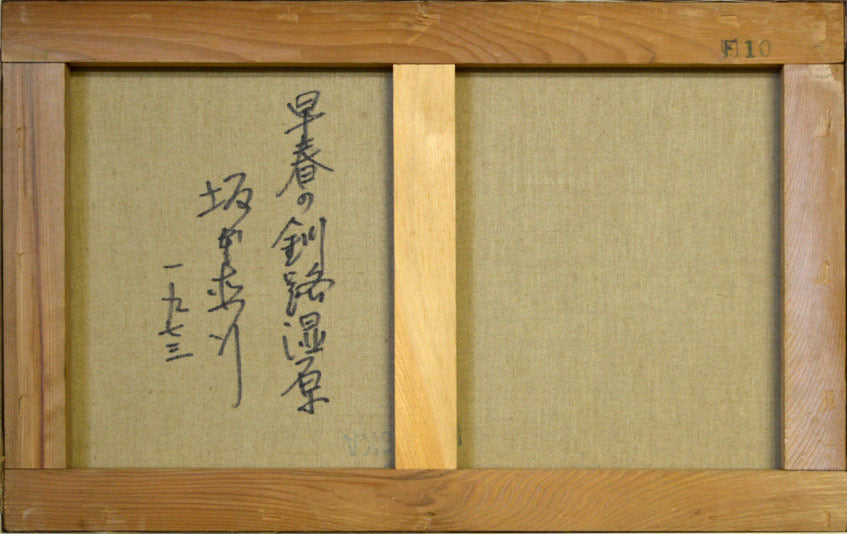 F10
早春の釧路湿原
坂本直行
一九七三